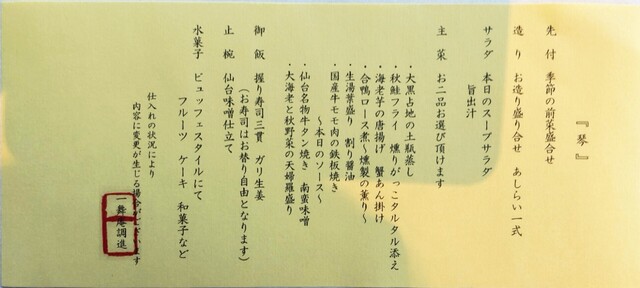 『琴』
先付 季節の前菜盛合せ
造り お造り盛り合せ あしらい一式
サラダ 本日のスープサラダ
旨出汁
主菜 お二品お選び頂けます
・大黒占地の土瓶蒸し
・秋鮭フライ 燻りがっこタルタル添え
・海老芋の唐揚げ 蟹あん掛け
・合鴨ロース煮〜燻製の薫り〜
・生湯葉盛り 割り醤油
・国産牛モモ肉の鉄板焼き
〜本日のソース〜
・仙台名物牛タン焼き 南蛮味噌
・大海老と秋野菜の天婦羅盛り
御飯 握り寿司三貫 ガリ生姜
(お寿司はお替り自由となります)
止椀 仙台味噌仕立て
水菓子 ビュッフェスタイルにて
フルーツ ケーキ 和菓子など
仕入れの状況により
内容に変更が生じる場合がございます
一舞庵調進